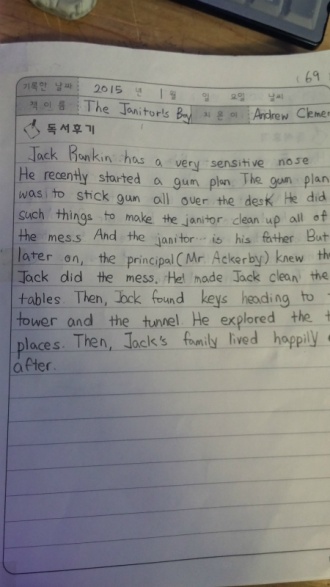 169
기록한 날짜 2015 년 1 월 일 요일 날씨
책이름 The Janitor's Boy 지은이 Andrew Cleme
독서후기
Jack Rankin has a very sensitive nose
He recently started a gum plan The gum plan
was to stick gum all over the desk He did
such things to make the janitor clean up all of
the mess And the janitor is his father But
later on, the principal (Mr Ackerby) knew th
Jack did the mess. He made Jack clean the
tables Then, Jack found keys heading to
tower and the tunnel He explored the t
places. Then, Jack's family lived happily
after.